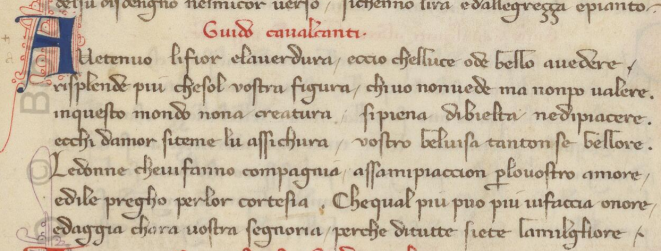 delsu disdengno nelmicor verso / sichenno lira edallegrezza epianto .
Guido caualcanti .
AVetenuo lifior elauerdura / eccio chelluce ode bello auedere /
risplende piu chesol vostra figura / chi uo nonuede ma nonpo valere .
inquesto mondo nona creatura / sipiena dibielta nedipiacere .
ecchi damor siteme lu assichura / vostro beluisa tantonse bellore .
Ledonne cheuifanno compagnia / assamipiaccion ꝑlouostro amore /
edile pregho perlor cortesia / Chequal piu puo piu uifaccia onore /
edaggia chara uostra segnoria / perche ditutte siete lamilgliore /